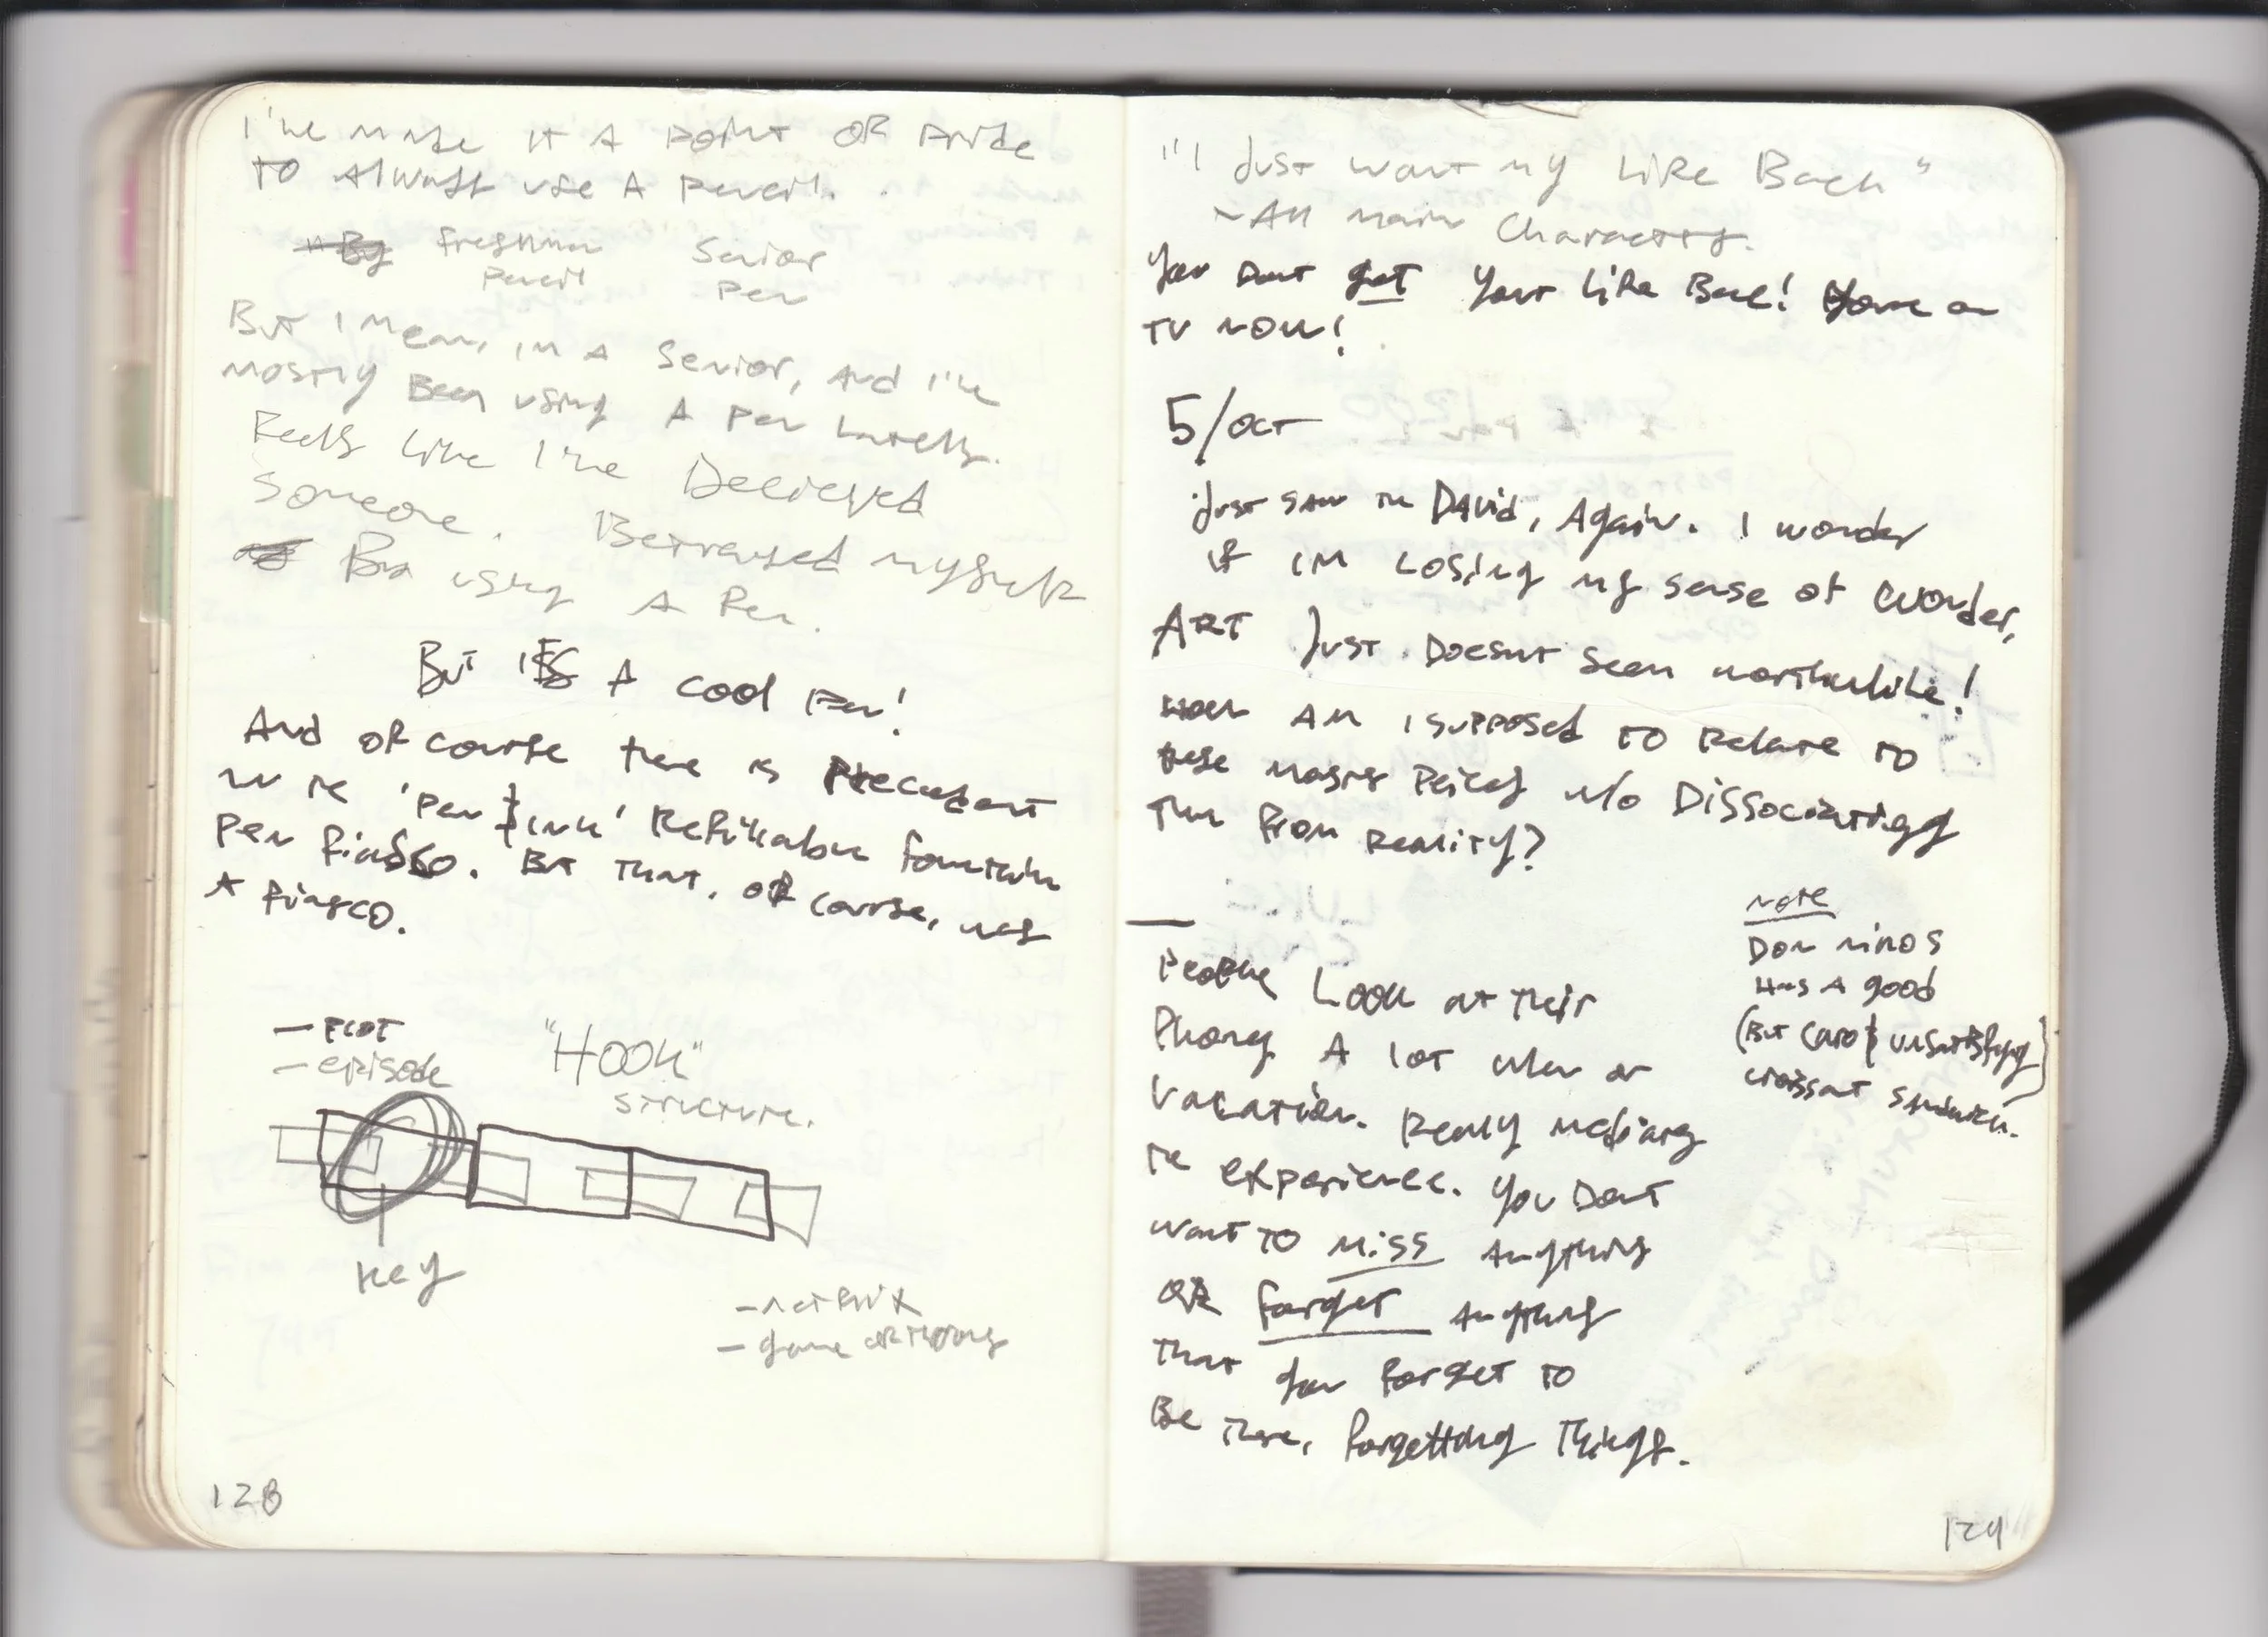 I've made it a point of pride
to always use a pencil.
By freshman Senior
pencil pen
But I mean, im a Senior, and I've
mostly Been using A pen lately.
Feels like I've Decieved
Someone. Betrayed myself
By using A Pen.
But it's A cool pen!
And of course there is precedent
in the 'pen & ink' Refillable fountain
pen fiasco. But that, of course, was
A fiasco.
— Plot
— episode
"Hook"
structure.
key
— netflix
— game of thrones
128
"I Just want my Life Back"
~ All main Characters.
You Dont get Your Life Back! Youre on
TV now!
5/oct
Just saw the David, Again. I wonder
if im Losing my sense of wonder,
ART Just Doesnt Seem worthwhile!
How am I supposed to Relate to
these masters Peices w/o Dissociating
them from Reality?
note
Don ninos
Has A good
(But Caro & unsatisfying)
croissant sandwich.
—
People Look at their
Phones A lot when on
Vacation. Really mediates
the experience. You Dont
want to miss Anything
or forget Anything
That you forget to
Be There, forgetting Things.
129